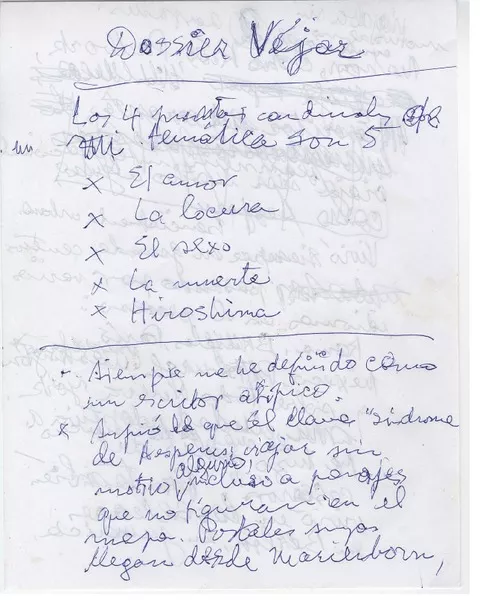 Dossier Véjar
Los 4 puntos cardinales de
un
mi temática son 5
x El amor
x La locura
x El sexo
x La muerte
x Hiroshima
- Siempre me he definido como
un escritor atípico.
x lo que él llama "síndrome
de viajar sin
motivo alguno, incluso a parajes
que no figuran en el
mapa. Postales suyas
llegan desde Marienborn,